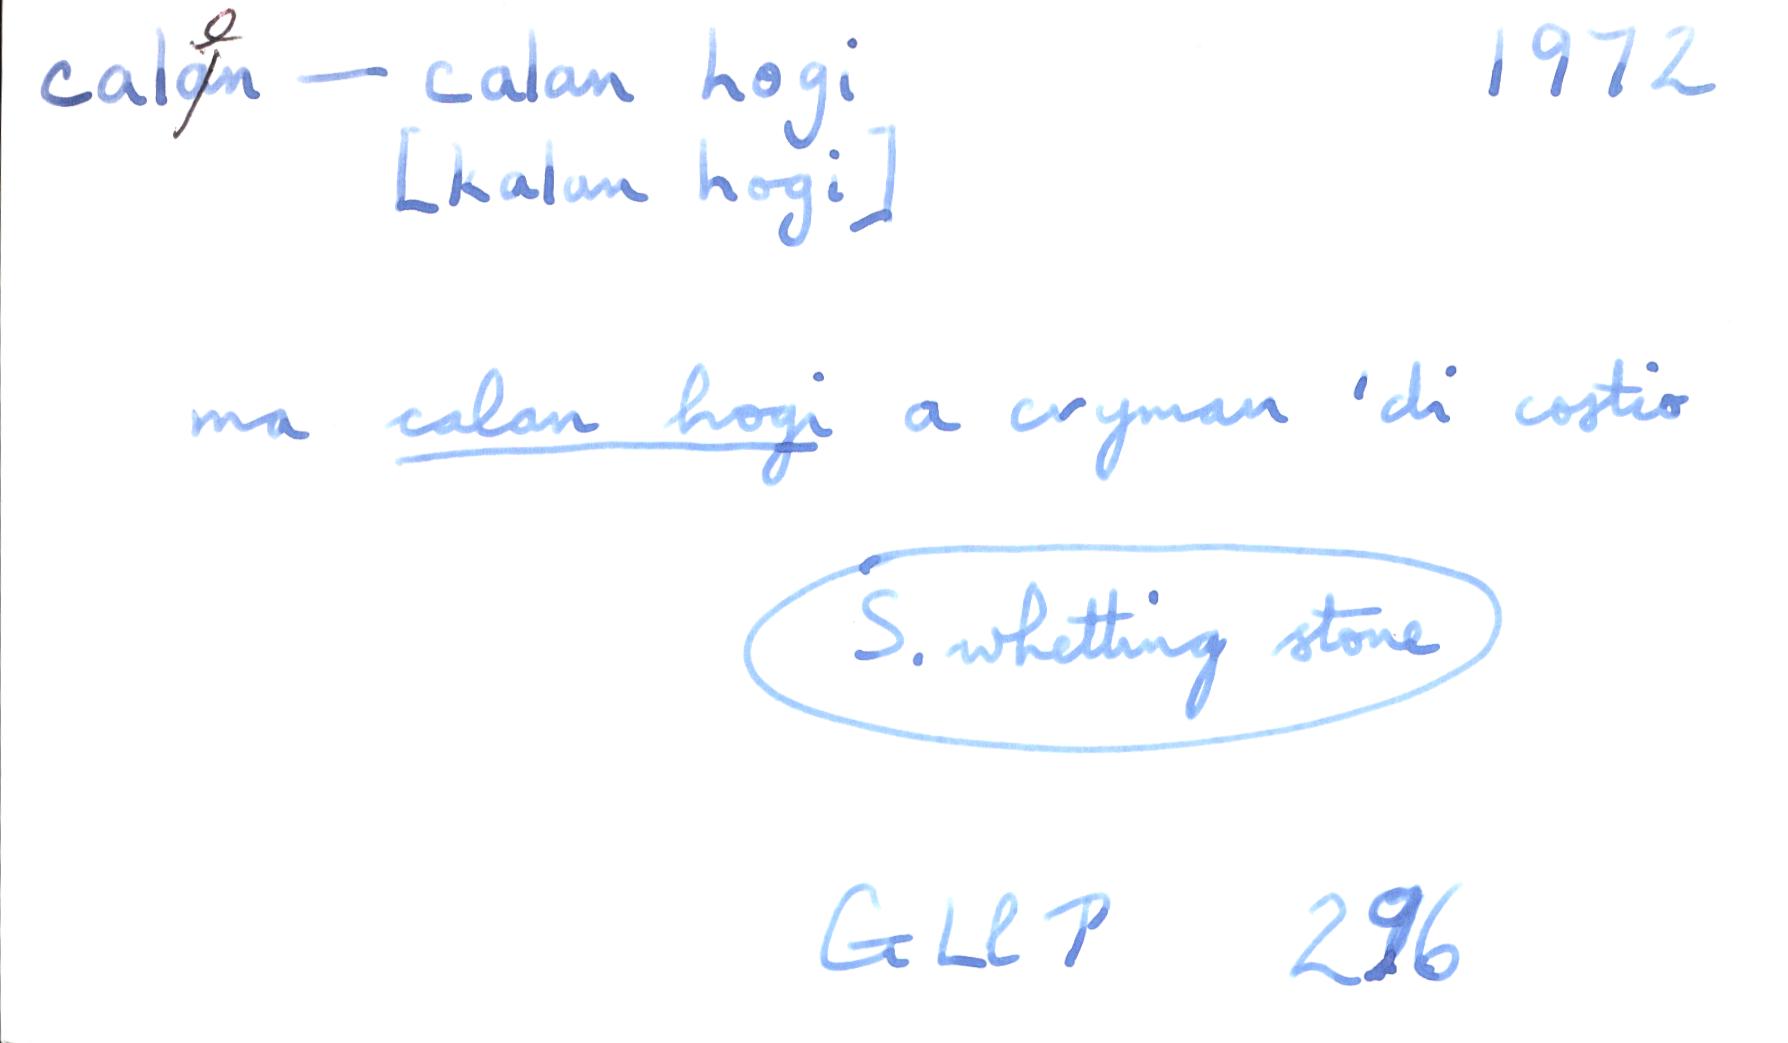 calen — calan hogi 1972
[kalan hogi]
ma calan hogi a cryman 'di costio
S. whetting stone
GLlP 296